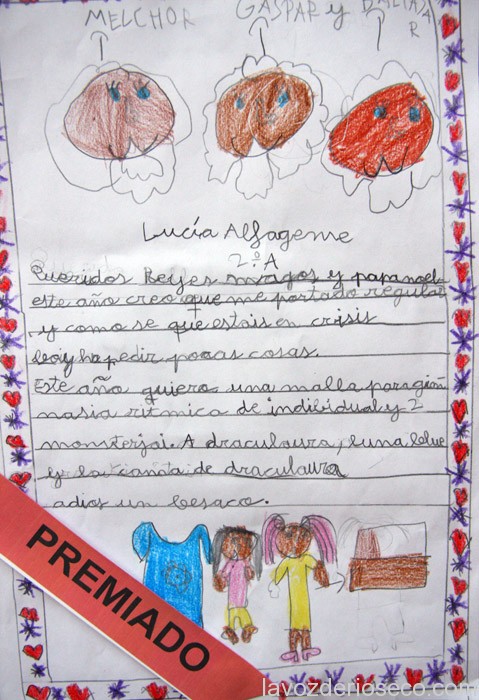 MELCHOR GASPAR y BALTASAR
Lucía Alfageme
2º A
Queridos Reyes magos y papanoel
este año creo que me portado regular
y como se que estais en crisis
boiy ha pedir pocas cosas.
Este año quiero una malla para gim
nasia ritmica de indibidual y 2
monsterjai. A draculaura, luna blue
y la camita de draculaura
adios un besaco.
PREMIADO
lavozderioseco.com